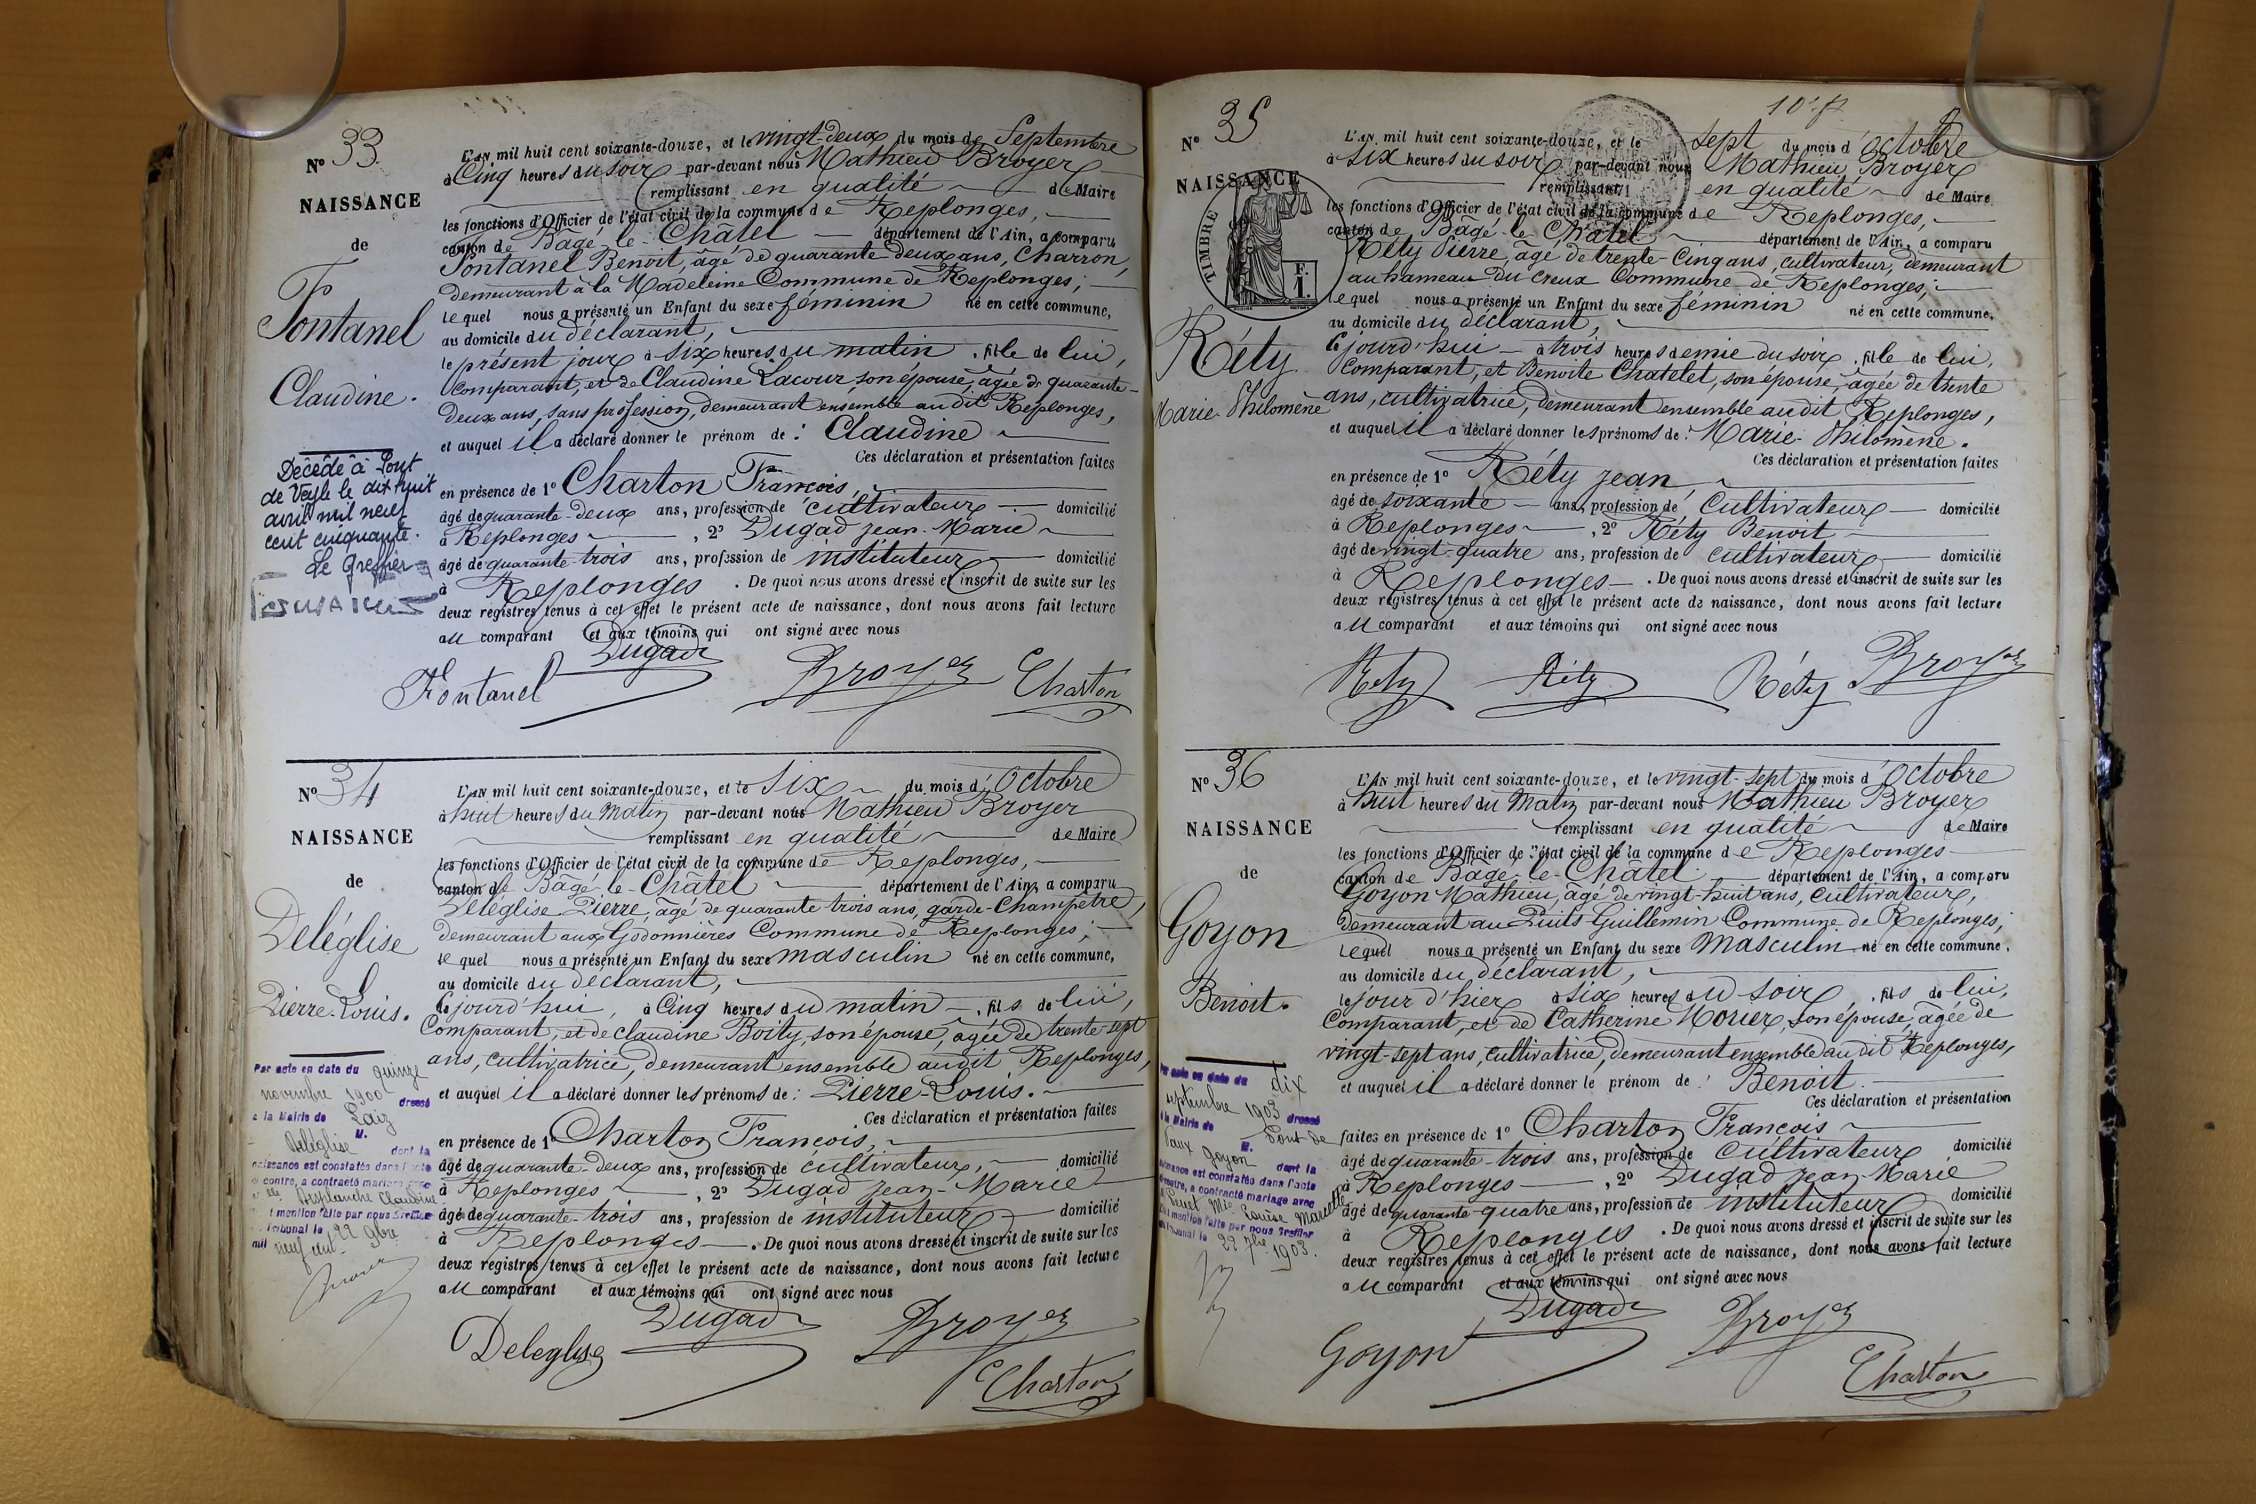 N° 33
NAISSANCE
de
Fontanel
Claudine.
Décédé à Pont
de Veyle le dix huit
avril mil neuf
cent cinquante.
Le Greffier
L'AN mil huit cent soixante-douze, et le vingt-deux du mois de Septembre
à Cinq heures du soir par-devant nous Mathieu Broyer
remplissant en qualité de Maire
les fonctions d'Officier de l'état civil de la commune de Replonges,
canton de Bâgé-le-Châtel département de l'Ain, a comparu
Fontanel Benoit, âgé de quarante deux ans, Charron,
demeurant à la Madeleine Commune de Replonges;
lequel nous a présenté un Enfant du sexe féminin né en cette commune,
au domicile du déclarant,
le présent jour à six heures du matin, fille de lui,
Comparant, et de Claudine Lacour, son épouse, âgée de quarante-
deux ans, sans profession, demeurant ensemble au dit Replonges,
et auquel il a déclaré donner le prénom de : Claudine
Ces déclaration et présentation faites
en présence de 1° Charton François,
âgé de quarante-deux ans, profession de cultivateur domicilié
à Replonges, 2° Dugad Jean-Marie
âgé de quarante-trois ans, profession de instituteur domicilié
à Replonges. De quoi nous avons dressé et inscrit de suite sur les
deux registres tenus à cet effet le présent acte de naissance, dont nous avons fait lecture
au comparant et aux témoins qui ont signé avec nous
Dugad
Fontanel Broyer Charton
N° 34
NAISSANCE
de
Deléglise
Pierre-Louis.
Par acte en date du quinze
novembre 1900 dressé
à la Mairie de Laiz
M.
Deléglise dont la
naissance est constatée dans l'acte
ci contre, a contracté mariage avec
Desplanche Claudine
mention faite par nous Greffier
Tribunal le 22 9bre
mil neuf cent
L'AN mil huit cent soixante-douze, et le six du mois d'Octobre
à huit heures du matin par-devant nous Mathieu Broyer
remplissant en qualité de Maire
les fonctions d'Officier de l'état civil de la commune de Replonges,
canton de Bâgé-le-Châtel département de l'Ain, a comparu
Deléglise Pierre, âgé de quarante trois ans, garde-Champêtre,
demeurant aux Godonnières Commune de Replonges;
lequel nous a présenté un Enfant du sexe masculin né en cette commune,
au domicile du déclarant,
Ce jourd'hui, à Cinq heures du matin, fils de lui,
Comparant, et de Claudine Boity, son épouse, âgée de trente-sept
ans, cultivatrice, demeurant ensemble au dit Replonges,
et auquel il a déclaré donner les prénoms de : Pierre-Louis.
Ces déclaration et présentation faites
en présence de 1° Charton François,
âgé de quarante-deux ans, profession de cultivateur, domicilié
à Replonges, 2° Dugad Jean-Marie
âgé de quarante-trois ans, profession de instituteur domicilié
à Replonges. De quoi nous avons dressé et inscrit de suite sur les
deux registres tenus à cet effet le présent acte de naissance, dont nous avons fait lecture
au comparant et aux témoins qui ont signé avec nous
Dugad
Deleglise Broyer
Charton
N° 35
NAISSANCE
TIMBRE
F.
1.
Réty
Marie-Philomène
L'AN mil huit cent soixante-douze, et le sept du mois d'octobre
à six heures du soir par-devant nous Mathieu Broyer
remplissant en qualité de Maire
les fonctions d'Officier de l'état civil de la commune de Replonges,
canton de Bâgé-le-Châtel département de l'Ain, a comparu
Réty Pierre, âgé de trente-Cinq ans, cultivateur, demeurant
au hameau du creux Commune de Replonges;
lequel nous a présenté un Enfant du sexe féminin né en cette commune,
au domicile du déclarant,
Ce jourd'hui à trois heures demie du soir, fille de lui,
Comparant, et Benoite Chatelet, son épouse, âgée de trente
ans, cultivatrice, demeurant ensemble au dit Replonges,
et auquel il a déclaré donner les prénoms de : Marie-Philomène.
Ces déclaration et présentation faites
en présence de 1° Réty jean
âgé de soixante ans, profession de Cultivateur domicilié
à Replonges, 2° Réty Benoit
âgé de vingt-quatre ans, profession de cultivateur domicilié
à Replonges. De quoi nous avons dressé et inscrit de suite sur les
deux registres tenus à cet effet le présent acte de naissance, dont nous avons fait lecture
au comparant et aux témoins qui ont signé avec nous
Réty Réty Réty Broyer
N° 36
NAISSANCE
de
Goyon
Benoit.
Par acte en date du dix
septembre 1903 dressé
à la Mairie de Pont de
Vaux M. Goyon dont la
naissance est constatée dans l'acte
ci-contre, a contracté mariage avec
Mie Louise Marcelle
mention faite par nous Greffier
tribunal le 22 7bre 1903.
L'AN mil huit cent soixante-douze, et le vingt-sept du mois d'Octobre
à huit heures du matin par-devant nous Mathieu Broyer
remplissant en qualité de Maire
les fonctions d'Officier de l'état civil de la commune de Replonges
canton de Bâgé-le-Châtel département de l'Ain, a comparu
Goyon Mathieu, âgé de vingt-huit ans, cultivateur,
demeurant au Puits Guillemin Commune de Replonges,
lequel nous a présenté un Enfant du sexe masculin né en cette commune,
au domicile du déclarant,
le jour d'hier à six heures du soir, fils de lui,
Comparant, et de Catherine Morier, son épouse, âgée de
vingt-sept ans, cultivatrice, demeurant ensemble au dit Replonges,
et auquel il a déclaré donner le prénom de : Benoit.
Ces déclaration et présentation
faites en présence de 1° Charton François
âgé de quarante-trois ans, profession de cultivateur domicilié
à Replonges, 2° Dugad Jean-Marie
âgé de quarante-quatre ans, profession de instituteur domicilié
à Replonges. De quoi nous avons dressé et inscrit de suite sur les
deux registres tenus à cet effet le présent acte de naissance, dont nous avons fait lecture
au comparant et aux témoins qui ont signé avec nous
Dugad
Goyon Broyer
Charton